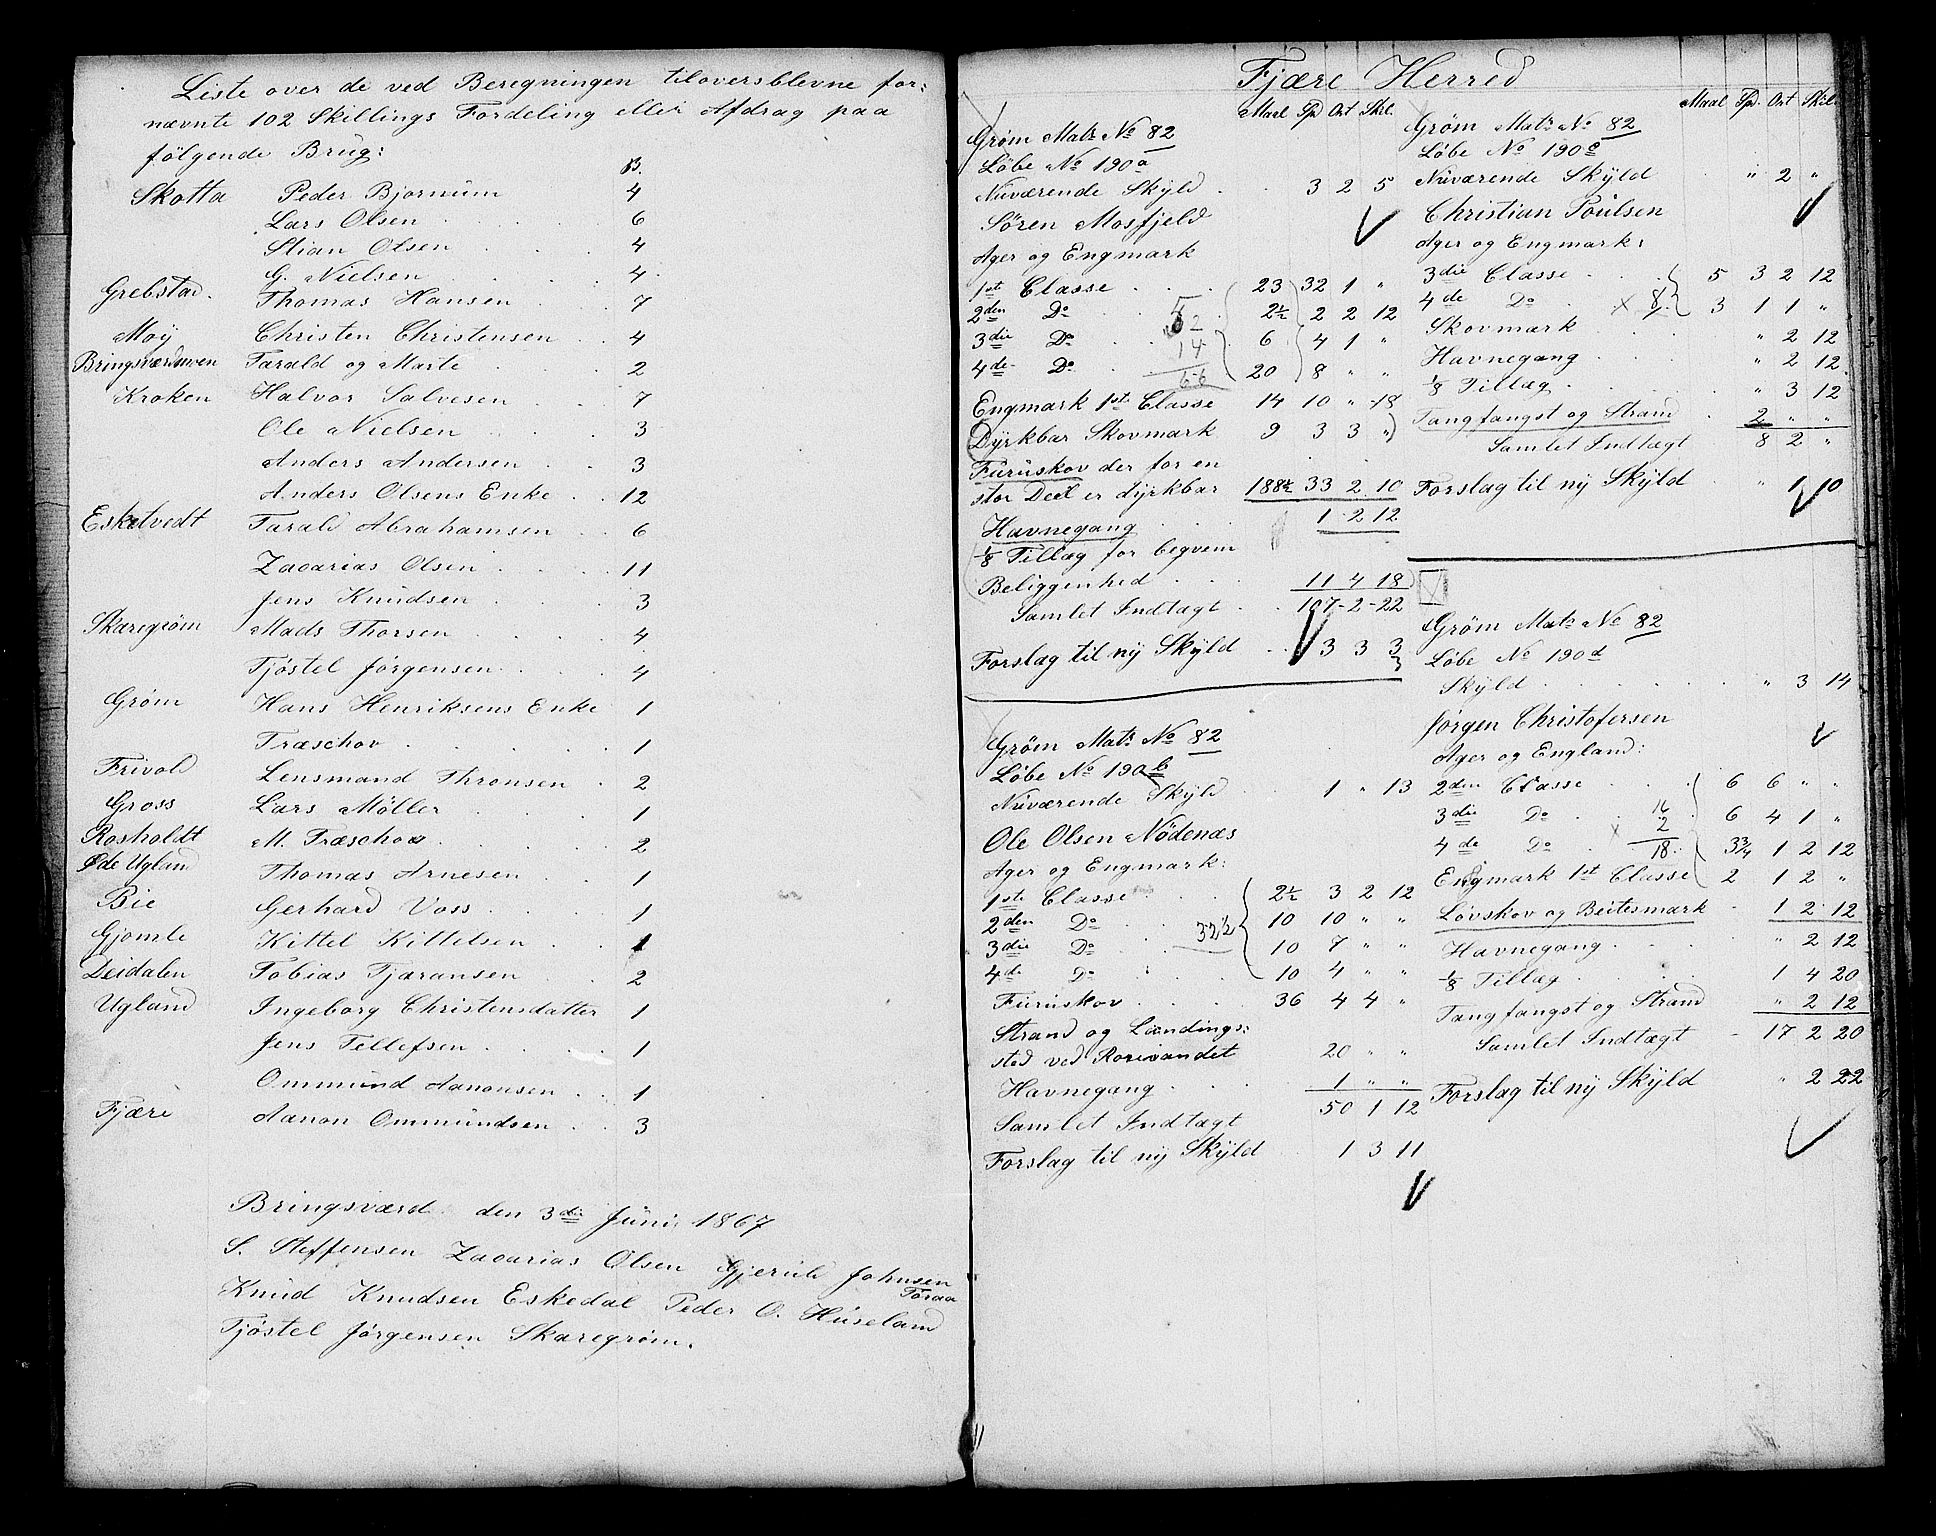 Liste over de ved Beregningen tiloversblevne for:
nævnte 102 Skillings Fordeling eller Afdrag paa
følgende Brug:
ß.
Skotta Peder Bjornum 4
Lars Olsen 6
Stian Olsen 4
G. Nielsen 4
Grebstad. Thomas Hansen 7
Moy Christen Christensen 4
Bringsværdmoen Tarald og Marte 2
Kroken Halvor Salvesen 7
Ole Nielsen 3
Anders Andersen 3
Anders Olsens Enke 12
Eskelvedt Tarald Abrahamsen 6
Zacarias Olsen 11
Jens Knudsen 3
Skaregrøm Mads Thorsen 4
Tjöstel Jørgensen 4
Grøm Hans Henriksens Enke 1
Træschov 1
Frivold Lensmand Thronsen 2
Gross Lars Møller 1
Rosholdt M. Træschov 2
Øde Ugland Thomas Arnesen 1
Bie Gerhard Voss 1
Gjømle Kittel Kittelsen 1
Deidalen Tobias Tjæransen 2
Ugland Ingeborg Christensdatter 1
Jens Tellefsen 1
Ommund Aanonsen 1
Fjære Aanon Ommundsen 3
Bringsværd den 3die Juni 1867
S. Steffensen Zacarias Olsen Gjeruld Johnsen
Toraa
Knud Knudsen Eskedal Peder O. Huseland
Tjöstel Jørgensen Skaregrøm.
Fjære Herred
Maal Sp Ort Skil.
Grøm Matr No 82
Löbe No 190a
Nuværende Skyld 3 2 5
Sören Mosfjeld
Ager og Engmark
1ste Classe 23 32 1 "
2den Do 2½ 2 2 12
3die Do 6 4 1 "
14
4de Do 20 8 " "
66
Engmark 1ste Classe 14 10 " 18
Dyrkbar Skovmark 9 3 3 "
Furuskov der for en
stor Deel er dyrkbar 188½ 33 2 10
Havnegang 1 2 12
⅛ Tillæg for beqvem
Beliggenhed 11 4 18
Samlet Indtægt 107-2-22
Forslag til ny Skyld 3 3 3
3
Grøm Matr No 82
Löbe No 190b
Nuværende Skyld 1 " 13
Ole Olsen Nödenæs
Ager og Engmark:
1ste Classe 2½ 3 2 12
2den Do 10 10 " "
32½
3die Do 10 7 " "
4de Do 10 4 " "
Furuskov 36 4 4 "
Strand og Landings:
sted ved Rorevandet 20 " "
Havnegang 1 " "
50 1 12
Samlet Indtægt
Forslag til ny Skyld 1 3 11
Maal Sp. Ort Skil.
Grøm Matr No 82
Löbe No 190c
Nuværende Skyld " 2 "
Christian Poulsen
Ager og Engmark:
3die Classe 5 3 2 12
4de Do x 8 3 1 1 "
Skovmark " 2 12
Havnegang " 2 12
⅛ Tillæg " 3 12
Tangfangst og Strand 2 " "
Samlet Indtægt 8 2 "
Forslag til ny Skyld " 1 10
Grøm Matr No 82
Löbe No 190d
Skyld " 3 14
Jørgen Christofersen
Ager og England:
2den Classe 6 6 " "
3die Do 16 6 4 1 "
x 2
4de Do 18 3¾ 1 2 12
Engmark 1ste Classe 2 1 2 "
Lövskov og Beitesmark 1 2 12
Havnegang " 2 12
⅛ Tillæg 1 4 20
Tangfangst og Strand " 2 12
Samlet Indtægt 17 2 20
Forslag til ny Skyld " 2 22